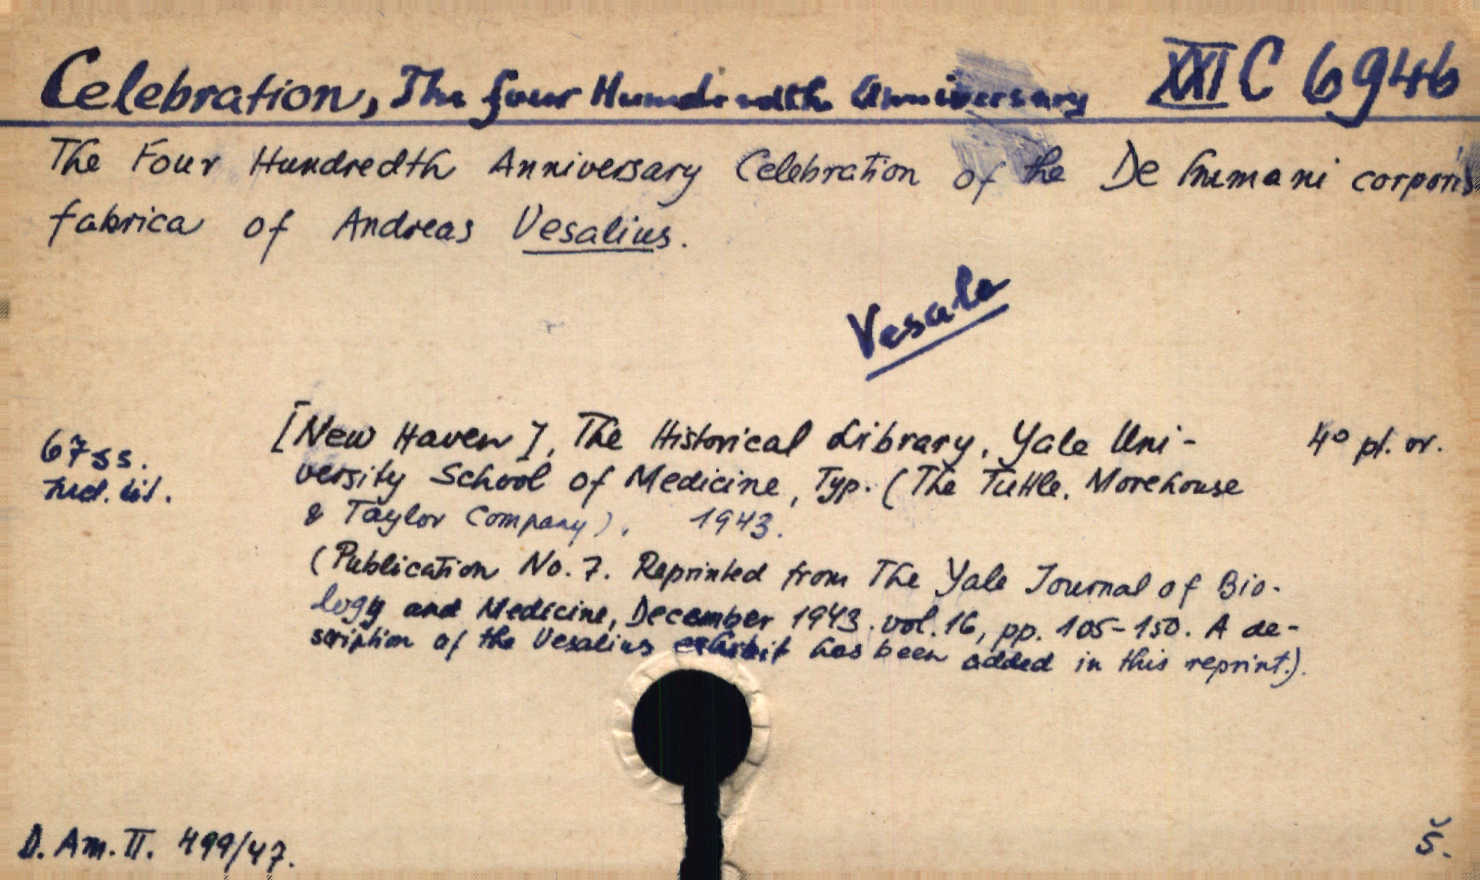 Celebration, The four Hundredth Anniversary XXI C 6946
The Four Hundredth Anniversary Celebration of the De humani corporis
fabrica of Andreas Vesalius.
Vesale
[New Haven], The Historical Library, Yale Uni- 4° pl. or.
67 ss.
versity School of Medicine, Typ. (The Tuttle, Morehouse
& Taylor Company). 1943.
(Publication No. 7. Reprinted from The Yale Journal of Bio-
logy and Medicine, December 1943. vol. 16, pp. 105-150. A de-
scription of the Vesalius exhibit has been added in this reprint.).
D. Am. II. 499/47.
Š.